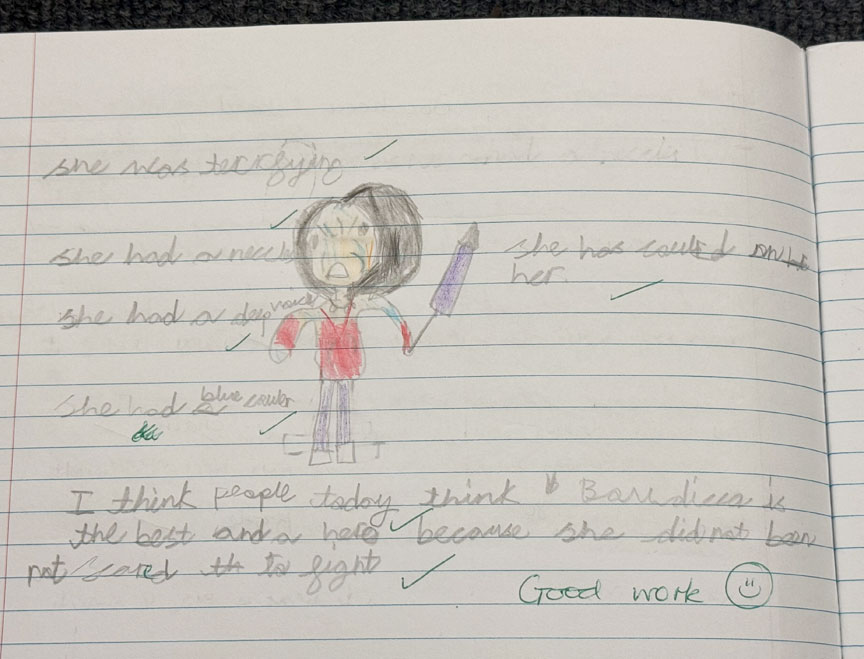 she was terrifying
she had a neck
she has could on
her.
she had a deep voice
she had a blue couler
I think people today think Boudicca is
the best and a hero because she did not been
not scared th to fight
Good work